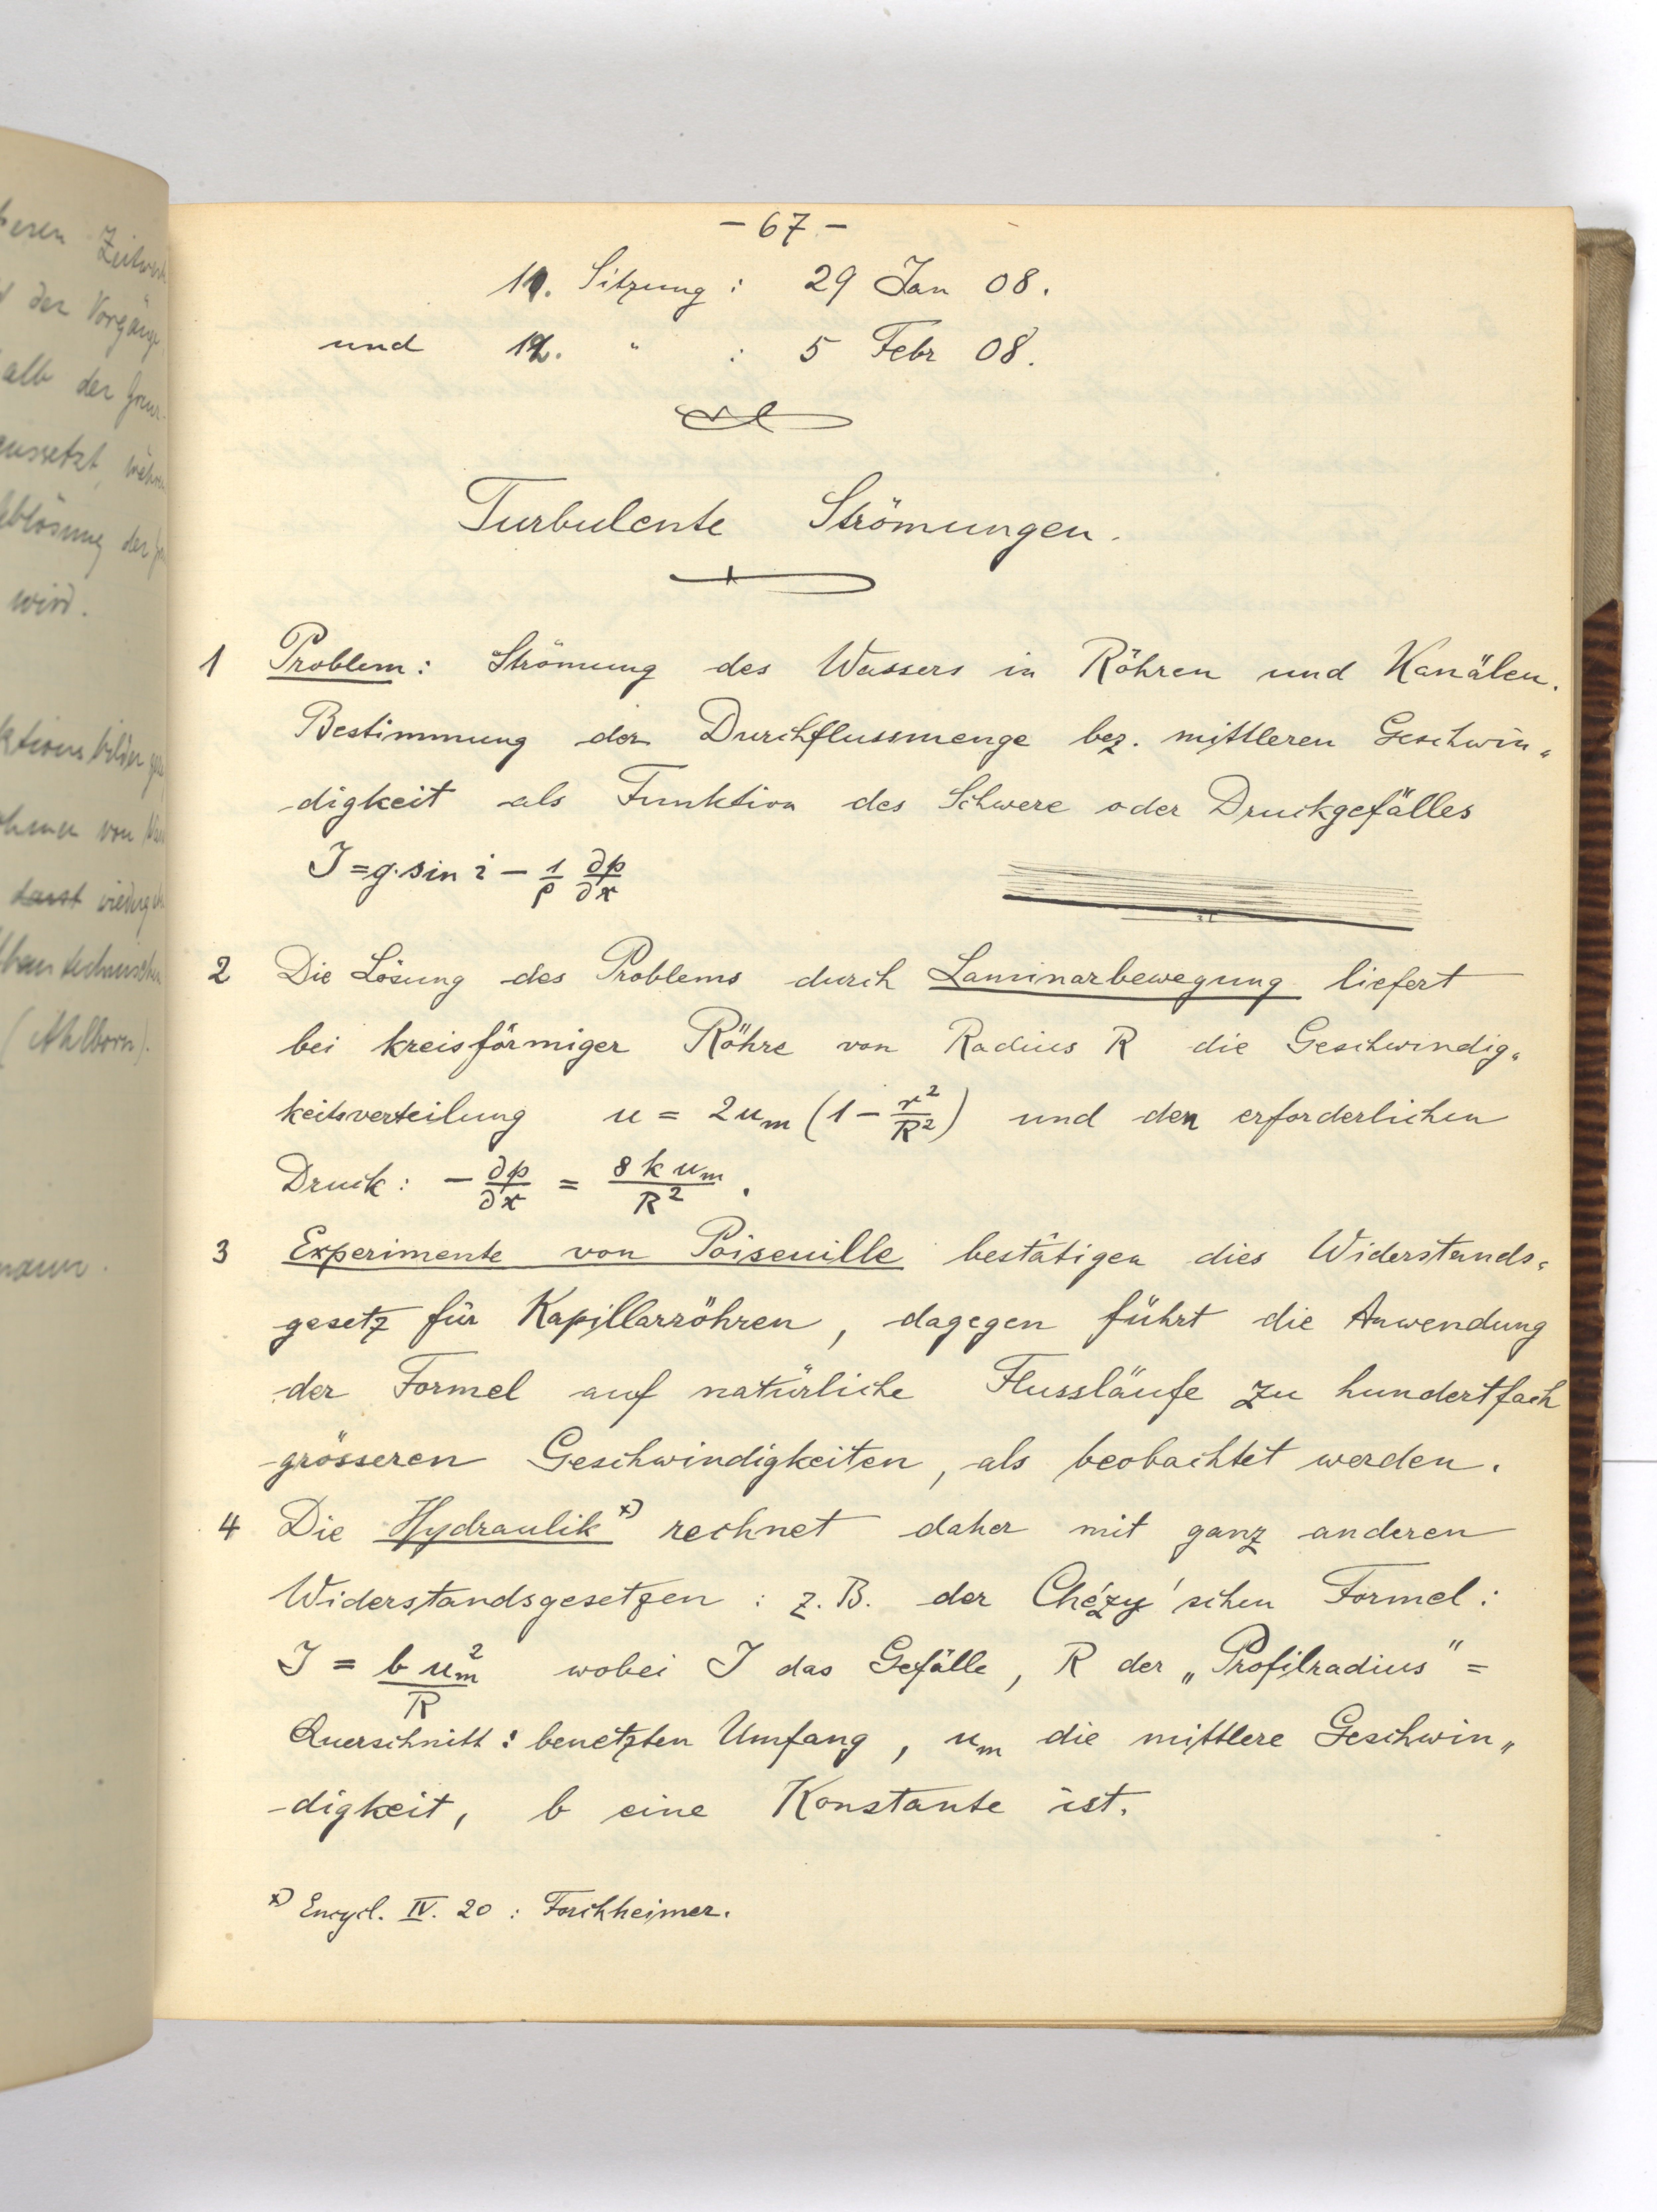 eren Zeitwert
der Vorgänge
alb der Grenz-
aussetzt, währen
blösung der
wird.
ktionsbilder
ohmer von
darst wiederge
technischen
(Ahlborn).
mann.
- 67 -
11. Sitzung : 29 Jan 08.
und 12. " : 5 Febr 08.
Turbulente Strömungen.
1 Problem: Strömung des Wassers in Röhren und Kanälen.
Bestimmung der Durchflussmenge bez. mittleren Geschwin-
digkeit als Funktion des Schwere oder Druckgefälles
J = g·sin i - 1/ρ ∂p/∂x
2 Die Lösung des Problems durch Laminarbewegung liefert
bei kreisförmiger Röhre von Radius R die Geschwindig-
keitsverteilung u = 2u_m (1 - r²/R²) und den erforderlichen
Druck: - ∂p/∂x = 8 k u_m / R² .
3 Experimente von Poiseuille bestätigen dies Widerstands-
gesetz für Kapillarröhren, dagegen führt die Anwendung
der Formel auf natürliche Flussläufe zu hundertfach
grösseren Geschwindigkeiten, als beobachtet werden.
4 Die Hydraulik x) rechnet daher mit ganz anderen
Widerstandsgesetzen : z.B. der Chézy'schen Formel:
J = b u_m² / R wobei J das Gefälle, R der „Profilradius" =
Querschnitt : benetzten Umfang, u_m die mittlere Geschwin-
digkeit, b eine Konstante ist.
x) Encycl. IV. 20 : Forchheimer.